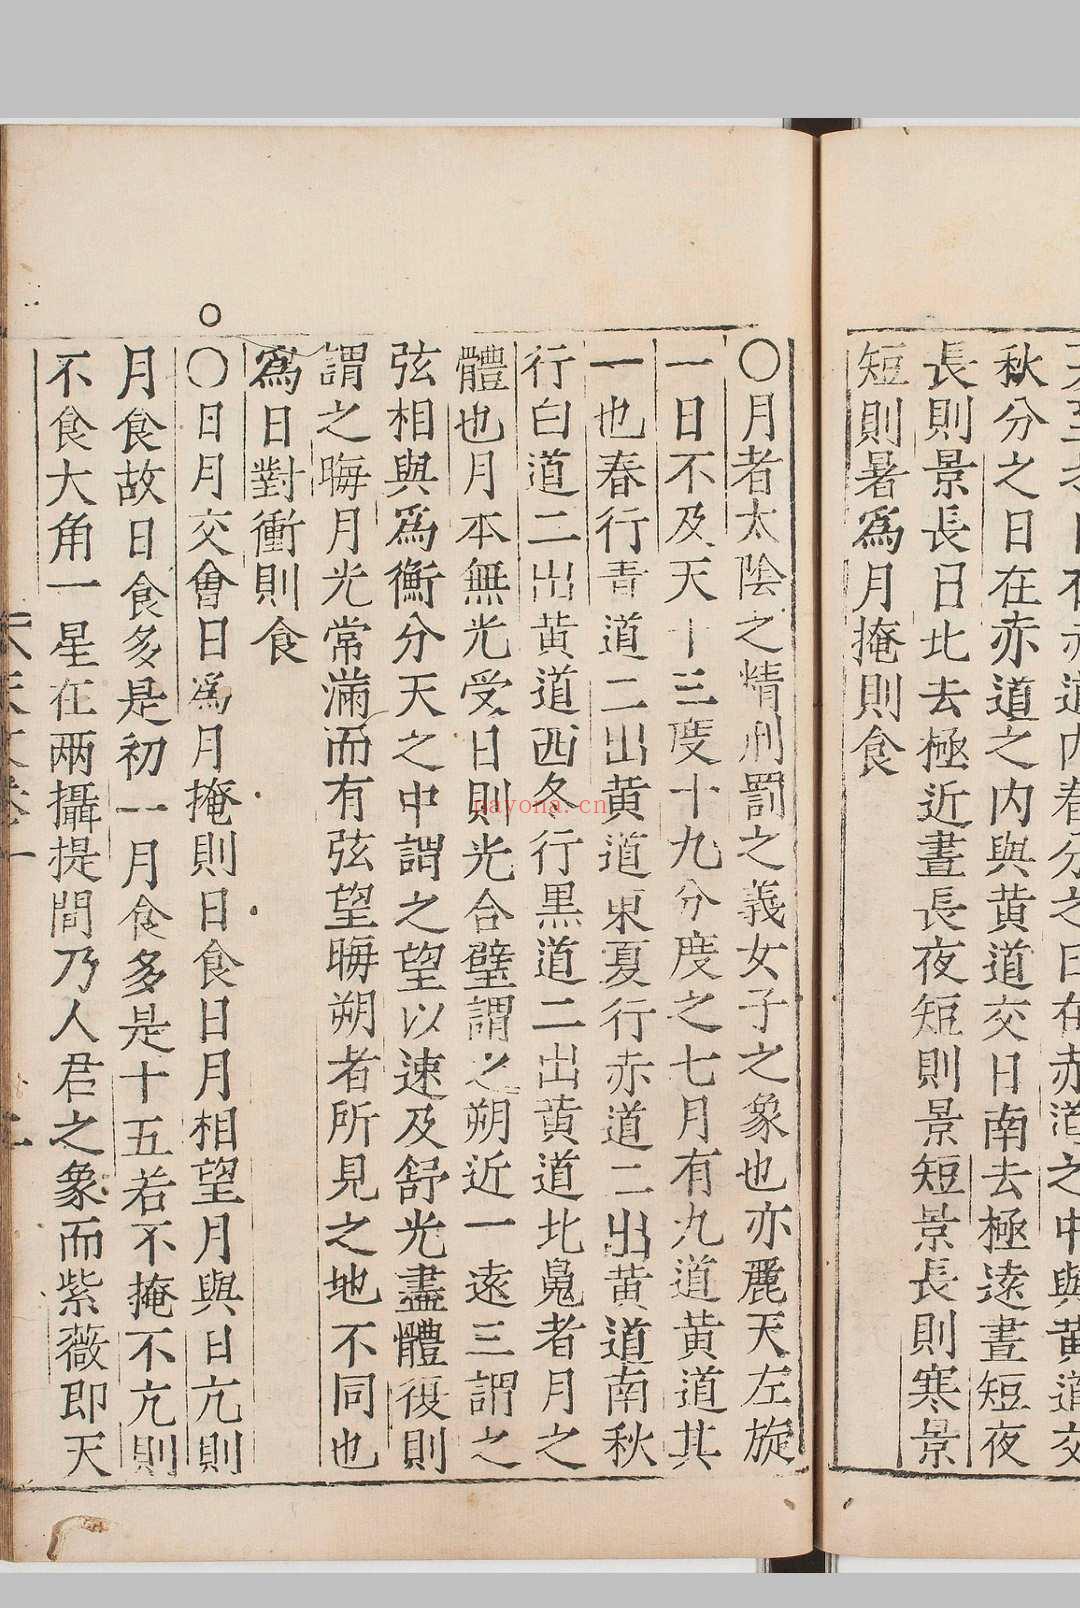 秋分之日在赤道之内與黄道交日南去極遠晝短夜
長則景長日北去極近晝長夜短則景短景長則寒景
短則暑爲月掩則食
〇月者太陰之精刑罰之義女子之象也亦麗天左旋
一日不及天十三度十九分度之七月有九道黄道其
一也春行青道二出黄道東夏行赤道二出黄道南秋
行白道二出黄道西冬行黒道二出黄道北鬼者月之
體也月本無光受日則光合璧謂之朔近一遠三謂之
弦相與爲衡分天之中謂之望以速及舒光盡體復則
謂之晦月光常滿而有弦望晦朔者所見之地不同也
爲日對衝則食
〇日月交會日爲月掩則日食日月相望月與日亢則
月食故日食多是初一月食多是十五若不掩不亢則
不食大角一星在兩攝提間乃人君之象而紫薇即天
nayona.cn